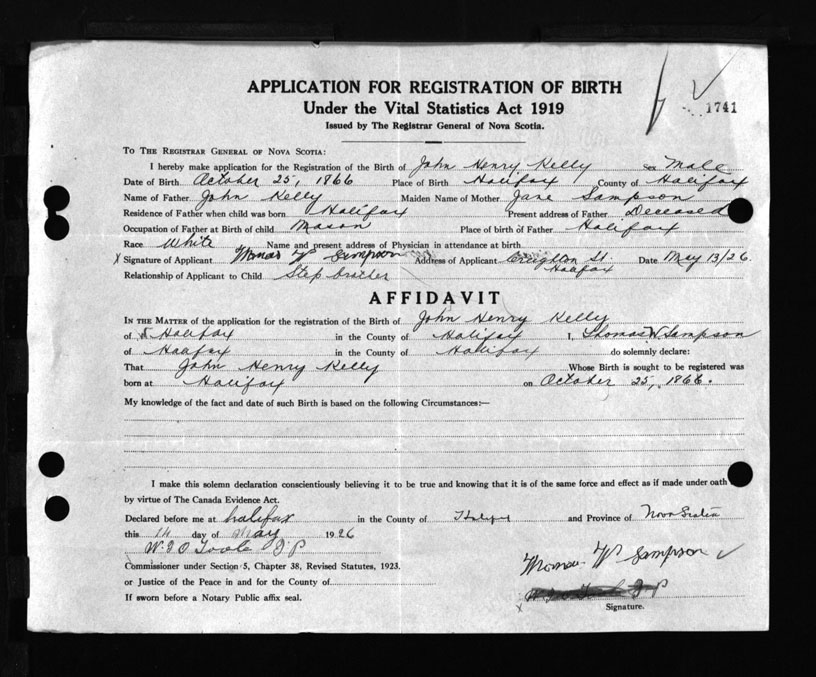 1741
APPLICATION FOR REGISTRATION OF BIRTH
Under the Vital Statistics Act 1919
Issued by The Registrar General of Nova Scotia.
TO THE REGISTRAR GENERAL OF NOVA SCOTIA:
I hereby make application for the Registration of the Birth of John Henry Kelly sex Male
Date of Birth October 25, 1866 Place of Birth Halifax County of Halifax
Name of Father John Kelly Maiden Name of Mother Jane Sampson
Residence of Father when child was born Halifax Present address of Father Deceased
Occupation of Father at Birth of child Mason Place of birth of Father Halifax
Race White Name and present address of Physician in attendance at birth
x Signature of Applicant Thomas W Sampson Address of Applicant Creighton St. Halifax Date May 13/26
Relationship of Applicant to Child Step brother
AFFIDAVIT
IN THE MATTER of the application for the registration of the Birth of John Henry Kelly
of Halifax in the County of Halifax I, Thomas W Sampson
of Halifax in the County of Halifax do solemnly declare:
That John Henry Kelly Whose Birth is sought to be registered was
born at Halifax on October 25, 1866.
My knowledge of the fact and date of such Birth is based on the following Circumstances:—
I make this solemn declaration conscientiously believing it to be true and knowing that it is of the same force and effect as if made under oath
by virtue of The Canada Evidence Act.
Declared before me at Halifax in the County of Halifax and Province of Nova Scotia
this 14 day of May 1926
W. J O Toole J P
Commissioner under Section 5, Chapter 38, Revised Statutes, 1923.
Thomas W Sampson
or Justice of the Peace in and for the County of
x J P
If sworn before a Notary Public affix seal.
Signature.